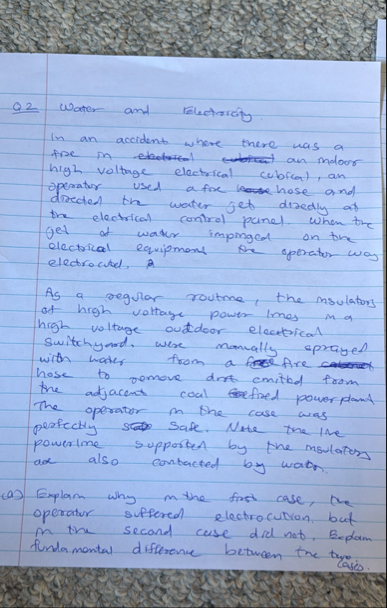 Q2 Water and Electricity.
In an accident where there was a
fire in an indoor
high voltage electrical cubical, an
operator used a fire hose and
directed the water jet directly at
the electrical control panel. When the
jet of water impinged on the
electrical equipment the operator was
electrocuted.
As a regular routine, the insulators
of high voltage power lines in a
high voltage outdoor electrical
switchyard. were manually sprayed
with water from a fire
hose to remove dirt emitted from
the adjacent coal fired power plant.
The operator in the case was
perfectly safe. Note the live
powerline supported by the insulators
are also contacted by water.
(a) Explain why in the first case, the
operator suffered electrocution, but
in the second case did not. Explain
fundamental difference between the two
cases.